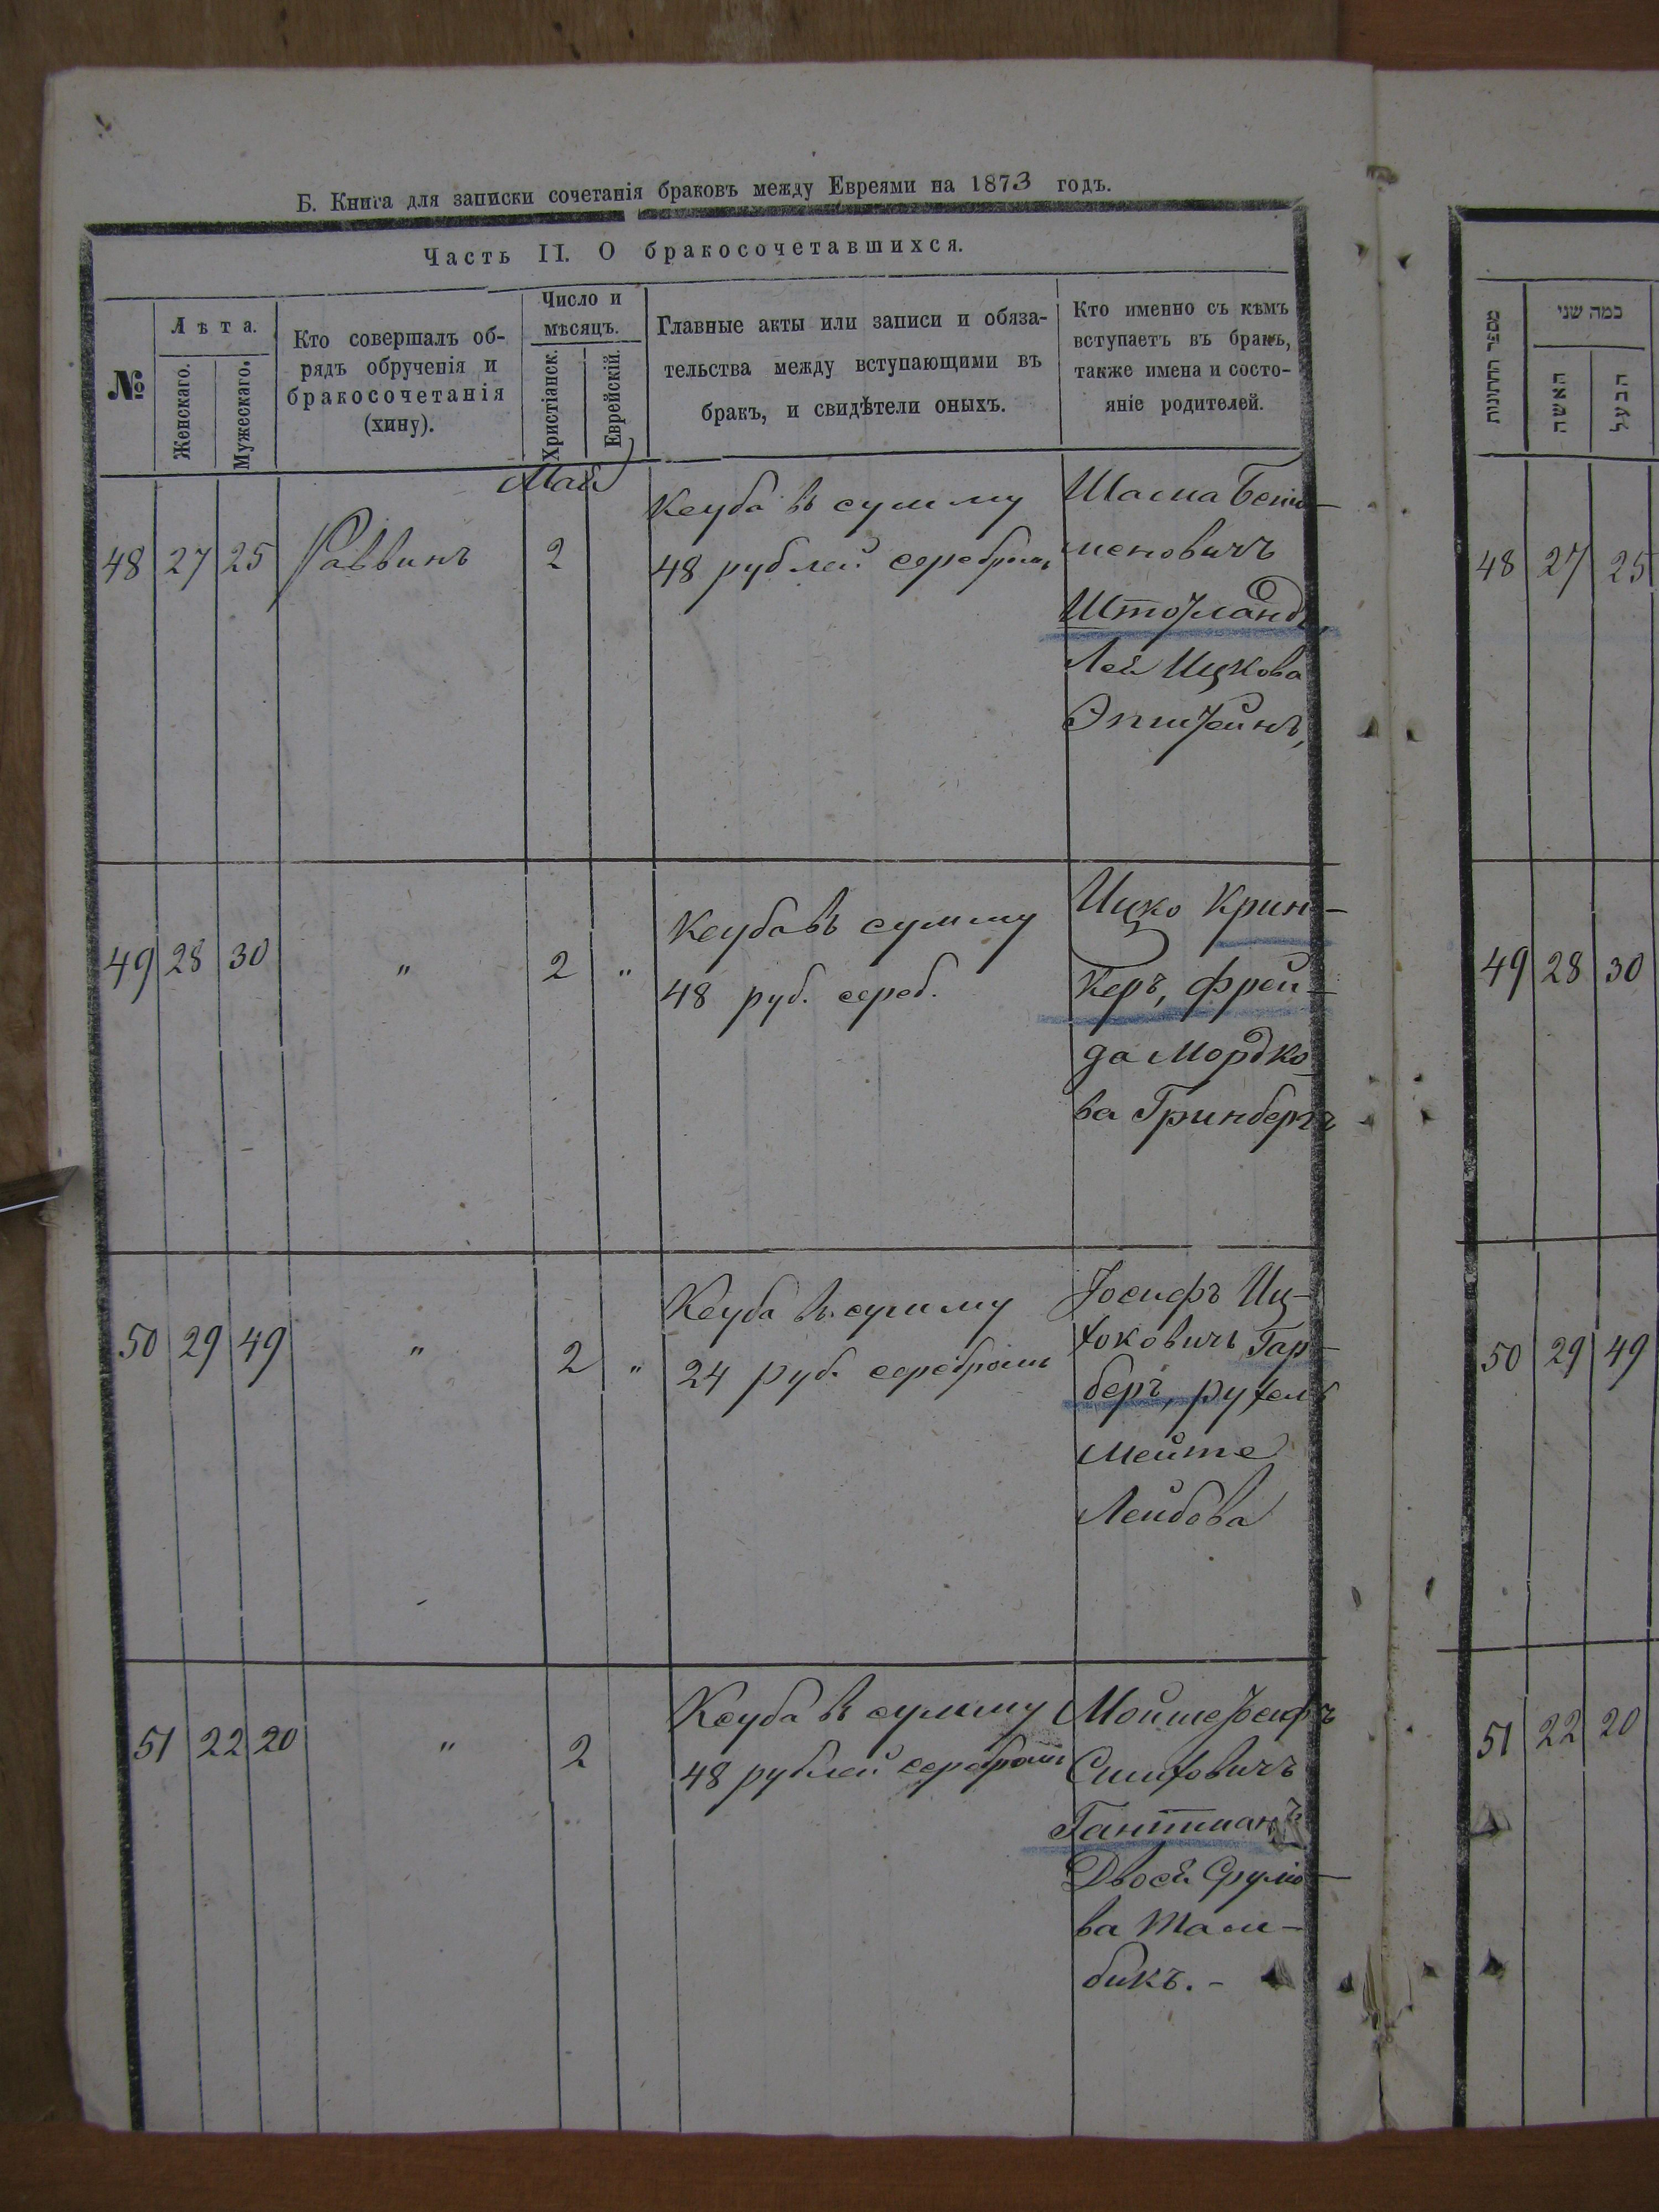 Б. Книга для записки сочетанія браковъ между Евреями на 1873 годъ.
Часть II. О бракосочетавшихся.
№
Лѣта.
Женскаго.
Мужескаго.
Кто совершалъ об-
рядъ обрученія и
бракосочетанія
(хину).
Число и
мѣсяцъ.
Христіанск.
Еврейскій.
Главные акты или записи и обяза-
тельства между вступающими въ
бракъ, и свидѣтели оныхъ.
Кто именно съ кѣмъ
вступаетъ въ бракъ,
также имена и состо-
яніе родителей.
Май
48 27 25 Раввинъ 2
Кеуба въ сумму
48 рублей серебромъ
Шасма
меновичъ
Штокландъ,
Лея Ицкова
Эпштейнъ,
49 28 30 " 2 "
Кеуба въ сумму
48 руб. сереб.
Ицко Крин-
керъ, Фрей-
да Мордко
ва Гринбергъ
50 29 49 " 2 "
Кеуба въ сумму
24 руб. серебромъ
Іосифъ Иц-
коковичъ Гар-
беръ, Рухель
Мейте
Лейбова
51 22 20 " 2
Кеуба въ сумму
48 рублей серебромъ
Мойше Іосифъ
Гантманъ
Двося Срулю-
ва Там-
бикъ. -
מספר החתונות
כמה שני
האשה
הבעל
48 27 25
49 28 30
50 29 49
51 22 20